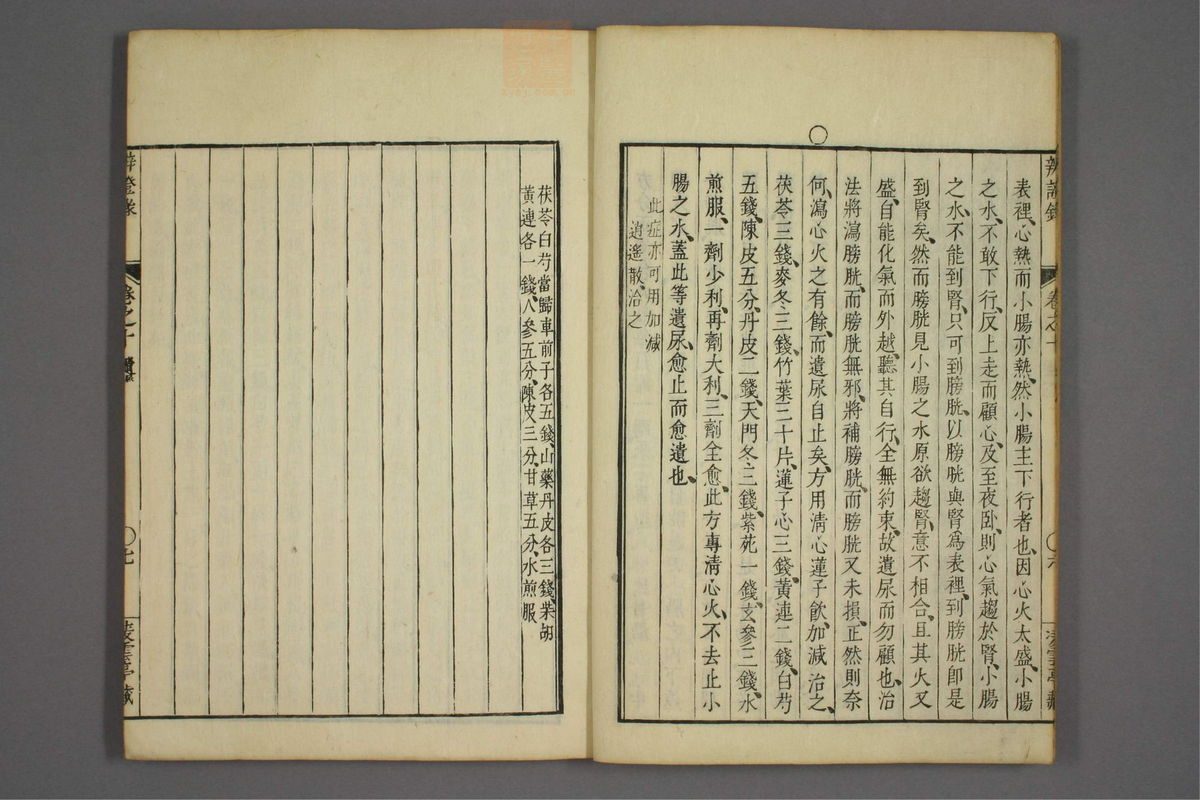 表裡、心熱而小腸亦熱、然小腸主下行者也、因心火太盛、小腸
之水、不敢下行、反上走而顧心、及至夜卧、則心氣趨於腎、小腸
之水、不能到腎、只可到膀胱、以膀胱與腎為表裡、到膀胱即是
到腎矣、然而膀胱見小腸之水原欲趨腎、意不相合、且其火又
盛、自能化氣而外越、聽其自行、全無約束、故遺尿而勿顧也、治
法將瀉膀胱、而膀胱無邪、將補膀胱、而膀胱又未損、正然則奈
何、瀉心火之有餘、而遺尿自止矣、方用清心蓮子飲、加減治之、
茯苓三錢、麥冬三錢、竹葉三十片、蓮子心三錢、黃連二錢、白芍
五錢、陳皮五分、丹皮二錢、天門冬三錢、紫苑一錢、玄參三錢、水
煎服、一劑少利、再劑大利、三劑全愈、此方專清心火、不去止小
腸之水、蓋此等遺尿、愈止而愈遺也、
此症亦可用加減
逍遙散、治之
辨證錄
卷之十
六
茯苓白芍當歸車前子各五錢、山藥丹皮各三錢、柴胡
黃連各一錢、人參五分、陳皮三分、甘草五分、水煎服
卷之十
七